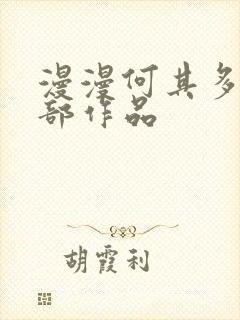 漫漫何其多
部作品
胡霞利